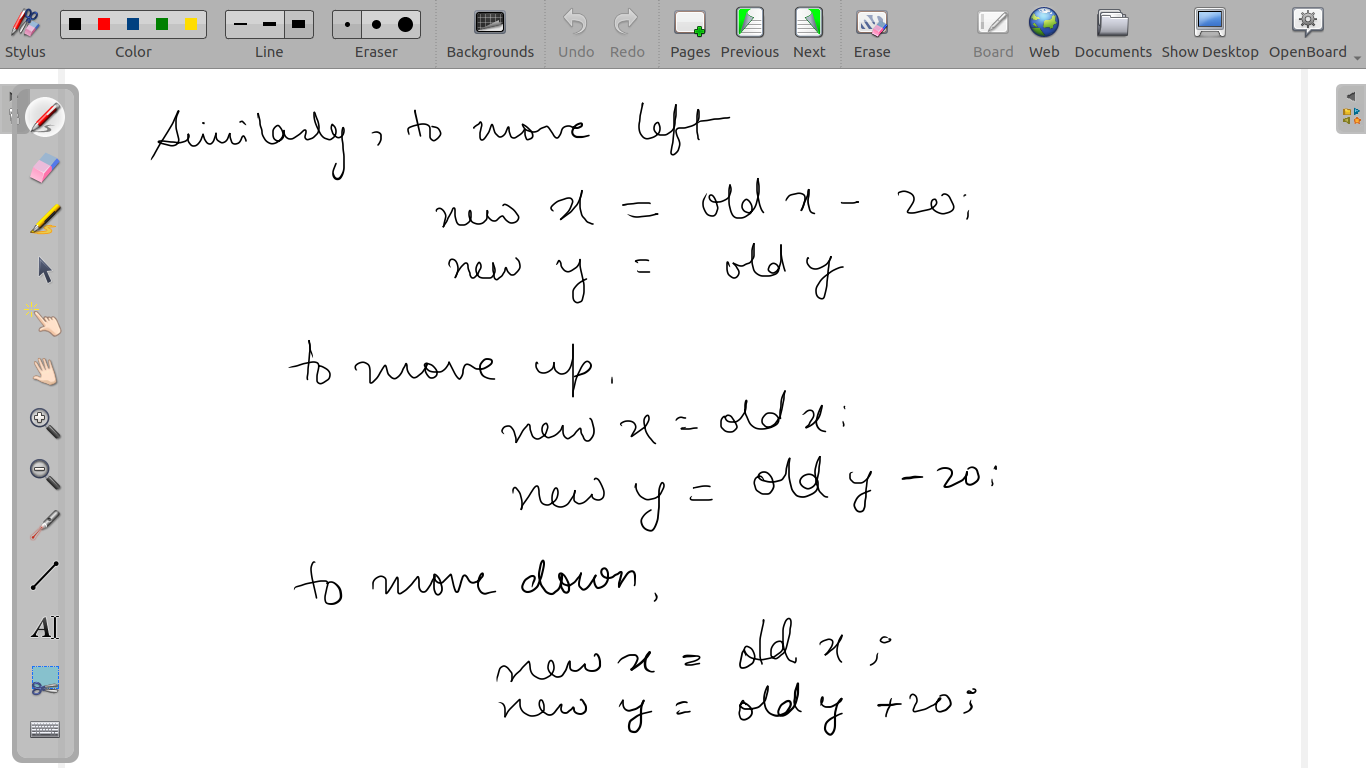 Stylus Color Line Eraser Backgrounds Undo Redo Pages Previous Next Erase Board Web Documents Show Desktop OpenBoard
Similarly, to move left
new x = old x - 20;
new y = old y
to move up.
new x = old x;
new y = old y - 20;
to move down,
new x = old x ;
new y = old y +20;
A